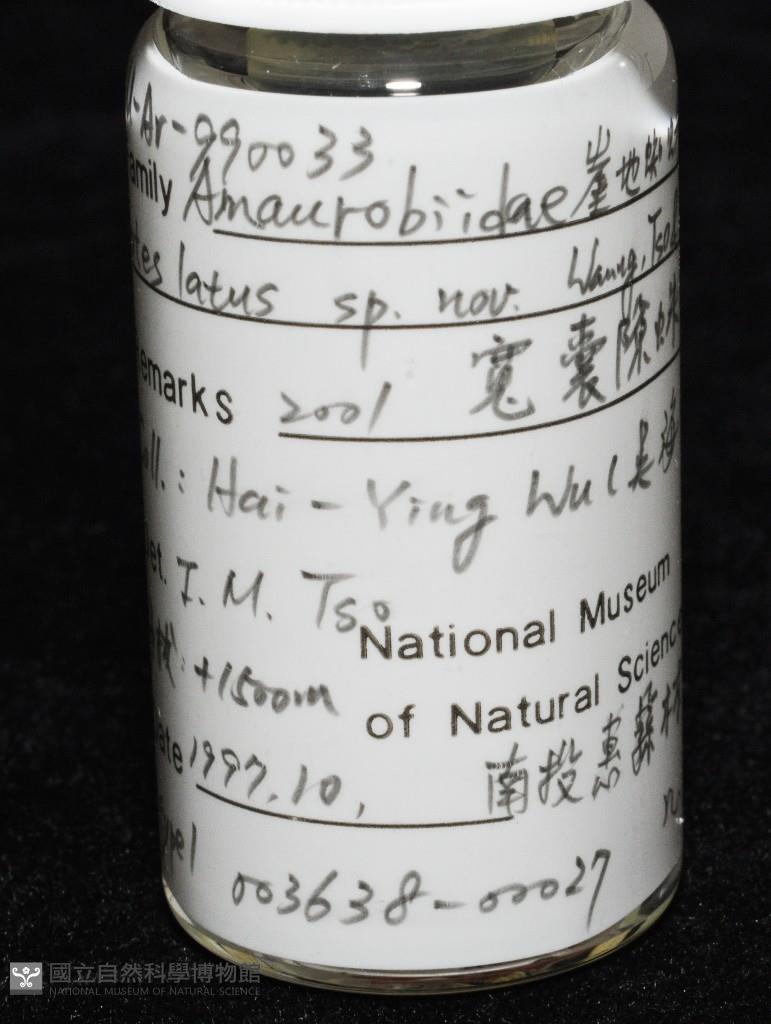 -Ar-990033
amily Amaurobiidae 崖地蛛
tes latus sp. nov. Wang, Tso
emarks 2001 寬囊隙蛛
oll.: Hai-Ying Wu (吳海
et. I. M. Tso
拔: +1500m
National Museum
of Natural Science
ate 1997.10, 南投惠蓀林
ype1
003638-00027
國立自然科學博物館
NATIONAL MUSEUM OF NATURAL SCIENCE